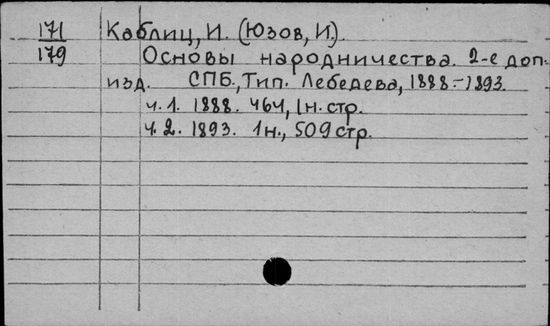 171 Каблиц, И. (Юзов, И).
179 Основы народничества. 2-е доп.
изд. СПБ., Тип. Лебедева, 1888.-1893.
ч. 1. 1888. 464, 1н. стр.
ч. 2. 1893. 1н., 509 стр.